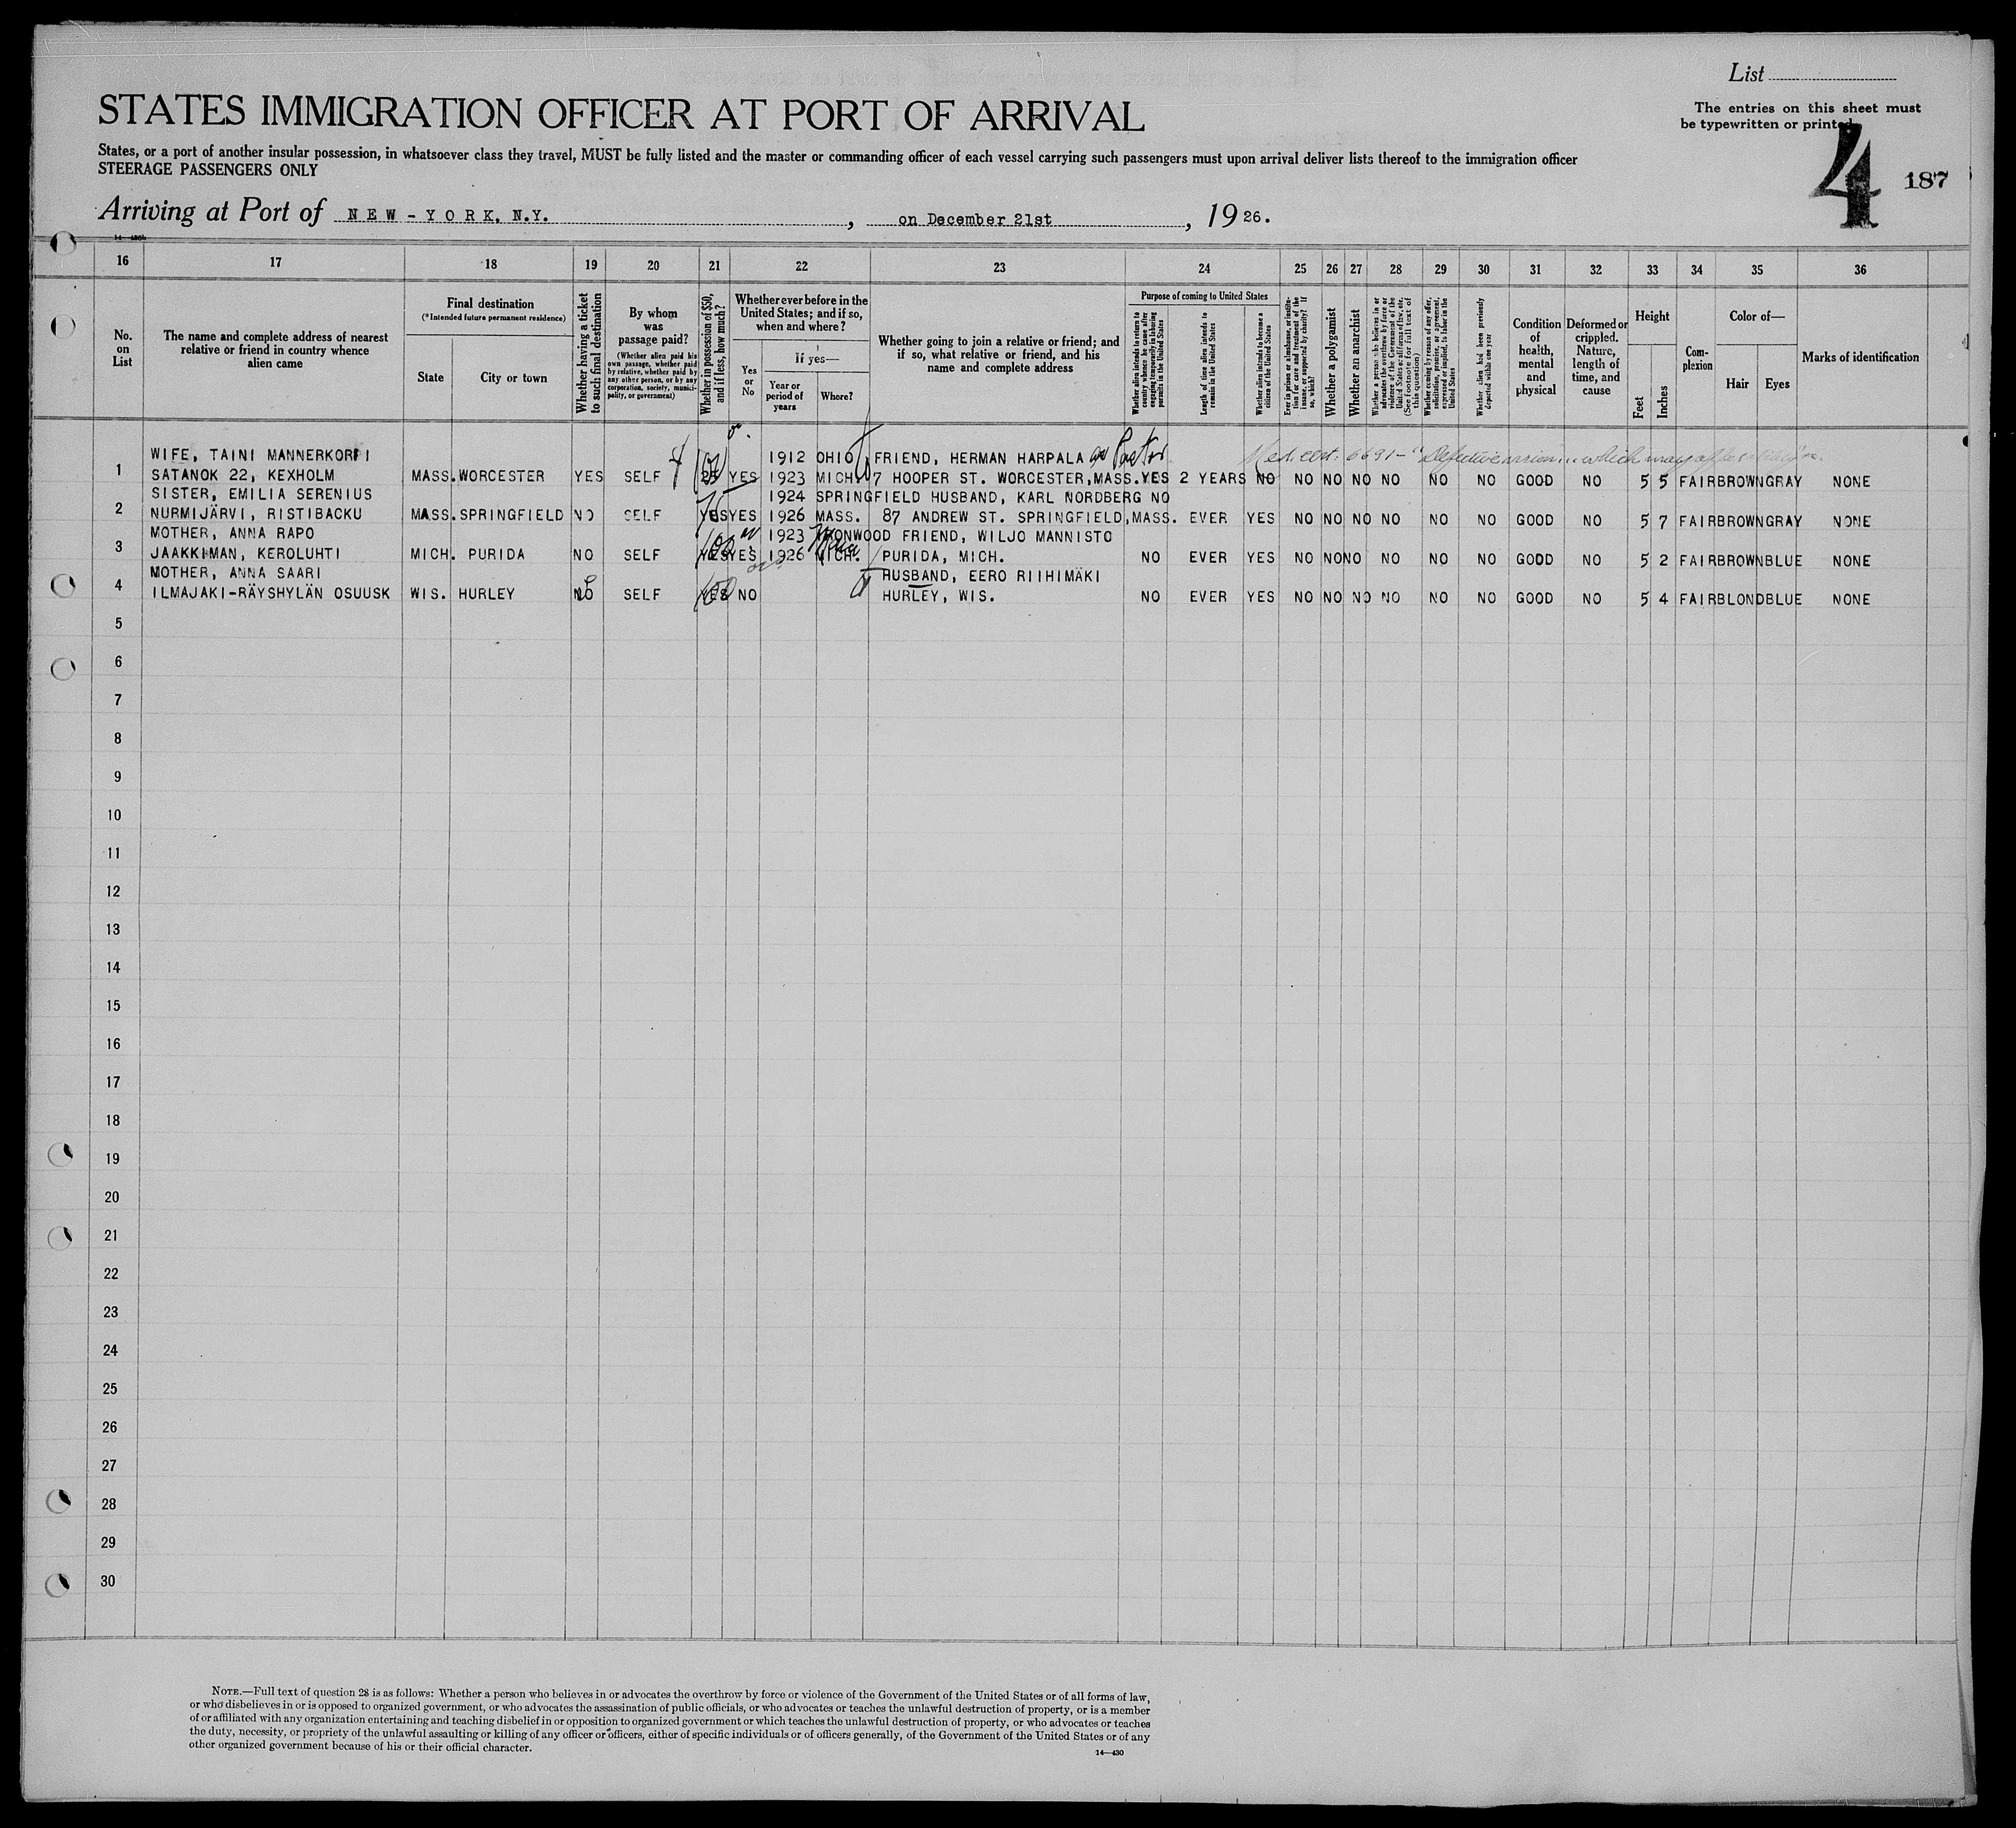 List
STATES IMMIGRATION OFFICER AT PORT OF ARRIVAL
The entries on this sheet must
be typewritten or printed
States, or a port of another insular possession, in whatsoever class they travel, MUST be fully listed and the master or commanding officer of each vessel carrying such passengers must upon arrival deliver lists thereof to the immigration officer
STEERAGE PASSENGERS ONLY
4 187
Arriving at Port of NEW-YORK. N.Y. , on December 21st , 1926.
16 17 18 19 20 21 22 23 24 25 26 27 28 29 30 31 32 33 34 35 36
No. on List
The name and complete address of nearest relative or friend in country whence alien came
Final destination
(*Intended future permanent residence)
State
City or town
Whether having a ticket to such final destination
By whom was passage paid?
(Whether alien paid his own passage, whether paid by relative, whether paid by any other person, or by any corporation, society, municipality, or government)
Whether in possession of $50, and if less, how much?
Whether ever before in the United States; and if so, when and where?
Yes or No
If yes—
Year or period of years
Where?
Whether going to join a relative or friend; and if so, what relative or friend, and his name and complete address
Purpose of coming to United States
Whether alien intends to return to country whence he came after engaging temporarily in laboring pursuits in the United States
Length of time alien intends to remain in the United States
Whether alien intends to become a citizen of the United States
Ever in prison or almshouse, or institution for care and treatment of the insane, or supported by charity? If so, which?
Whether a polygamist
Whether an anarchist
Whether a person who believes in or advocates the overthrow by force or violence of the Government of the United States or all forms of law, etc. (See footnote for full text of this question)
Whether coming by reason of any offer, solicitation, promise, or agreement, expressed or implied, to labor in the United States
Whether alien had been previously deported within one year
Condition of health, mental and physical
Deformed or crippled. Nature, length of time, and cause
Height
Feet
Inches
Complexion
Color of—
Hair
Eyes
Marks of identification
WIFE, TAINI MANNERKORPI 1912 OHIO FRIEND, HERMAN HARPALA Med. cert. 6691- "Defective vision which may affect
1 SATANOK 22, KEXHOLM MASS. WORCESTER YES SELF YES 1923 MICH. 7 HOOPER ST. WORCESTER, MASS. YES 2 YEARS NO NO NO NO NO NO NO GOOD NO 5 5 FAIR BROWN GRAY NONE
SISTER, EMILIA SERENIUS 1924 SPRINGFIELD HUSBAND, KARL NORDBERG NO
2 NURMIJÄRVI, RISTIBACKU MASS. SPRINGFIELD NO SELF YES YES 1926 MASS. 87 ANDREW ST. SPRINGFIELD, MASS. EVER YES NO NO NO NO NO NO GOOD NO 5 7 FAIR BROWN GRAY NONE
MOTHER, ANNA RAPO 1923 IRONWOOD FRIEND, WILJO MANNISTO
3 JAAKKIMAN, KEROLUHTI MICH. PURIDA NO SELF YES YES 1926 MICH. PURIDA, MICH. NO EVER YES NO NO NO NO NO NO GOOD NO 5 2 FAIR BROWN BLUE NONE
MOTHER, ANNA SAARI HUSBAND, EERO RIIHIMÄKI
4 ILMAJAKI-RÄYSHYLÄN OSUUSK WIS. HURLEY NO SELF YES NO HURLEY, WIS. NO EVER YES NO NO NO NO NO NO GOOD NO 5 4 FAIR BLOND BLUE NONE
5
6
7
8
9
10
11
12
13
14
15
16
17
18
19
20
21
22
23
24
25
26
27
28
29
30
NOTE.—Full text of question 28 is as follows: Whether a person who believes in or advocates the overthrow by force or violence of the Government of the United States or of all forms of law,
or who disbelieves in or is opposed to organized government, or who advocates the assassination of public officials, or who advocates or teaches the unlawful destruction of property, or is a member
of or affiliated with any organization entertaining and teaching disbelief in or opposition to organized government or which teaches the unlawful destruction of property, or who advocates or teaches
the duty, necessity, or propriety of the unlawful assaulting or killing of any officer or officers, either of specific individuals or of officers generally, of the Government of the United States or of any
other organized government because of his or their official character.
14—430